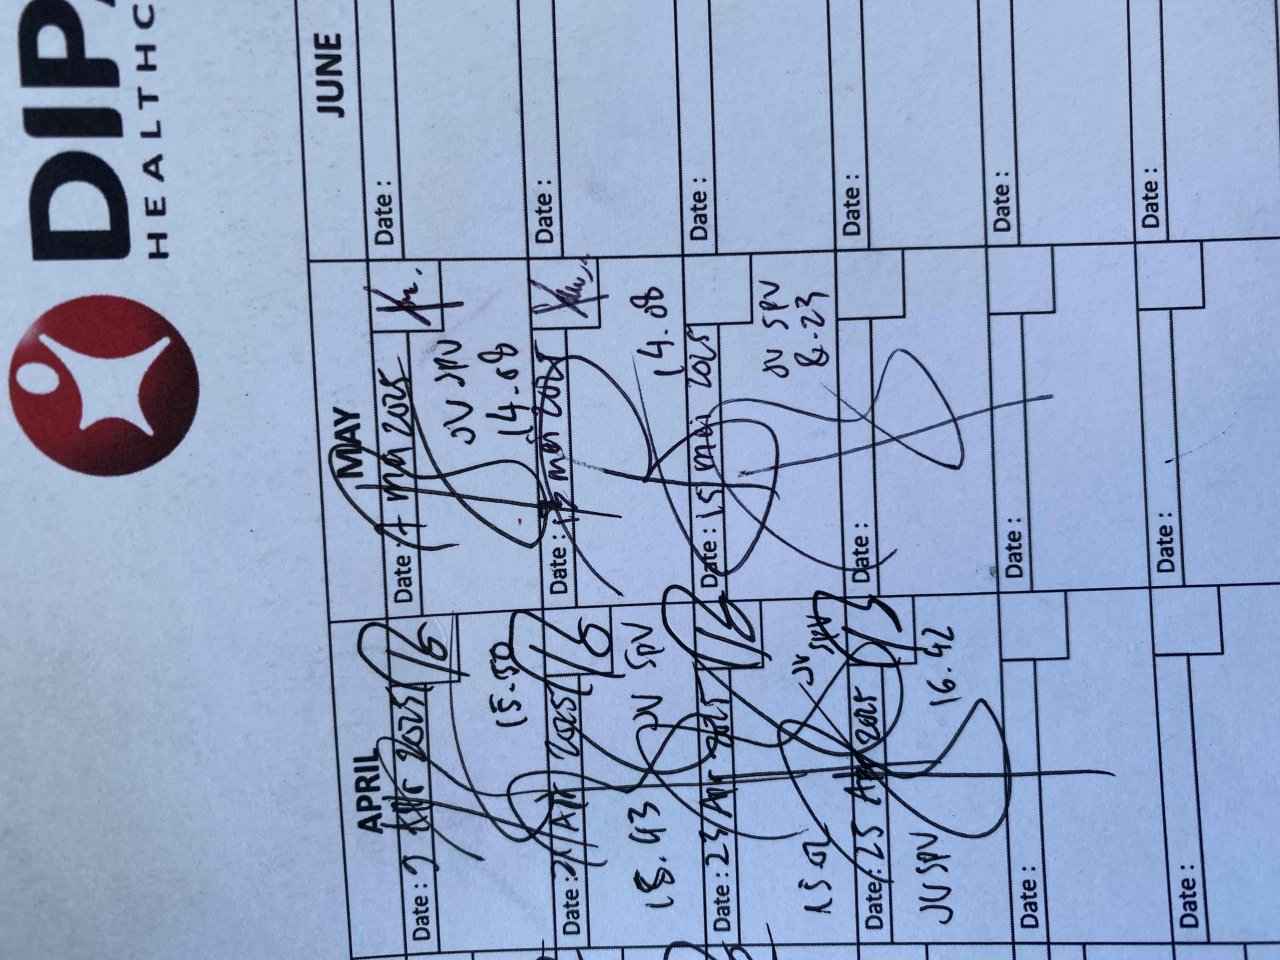 HEALTHC
APRIL
MAY
JUNE
Date : 9 Apr 2025
15.50
Date : 21 Apr 2025
18.43
JV SPV
Date : 23 Apr 2025
15 02
JV SPV
Date : 25 Apr 2025
16.42
JV SPV
Date :
Date :
Date : 7 mei 2025
JV SPV
14.08
Date : 13 mei 2025
14.08
Date : 15 mei 2025
JV SPV
8.23
Date :
Date :
Date :
Date :
Date :
Date :
Date :
Date :
Date :